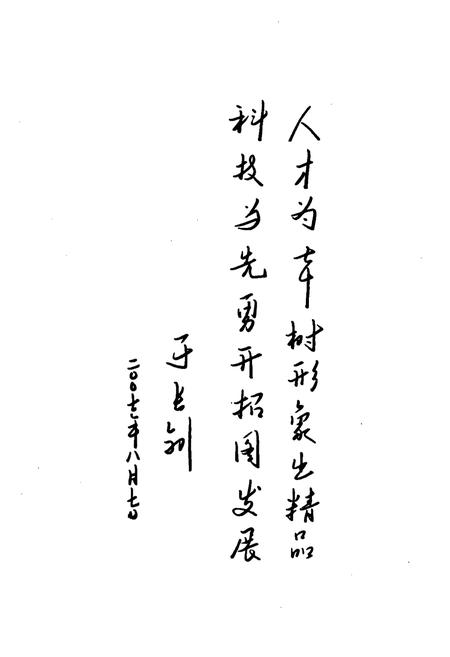 人才为本树形象出精品
科技为先勇开拓图发展
于长钊
二〇〇七年八月七日